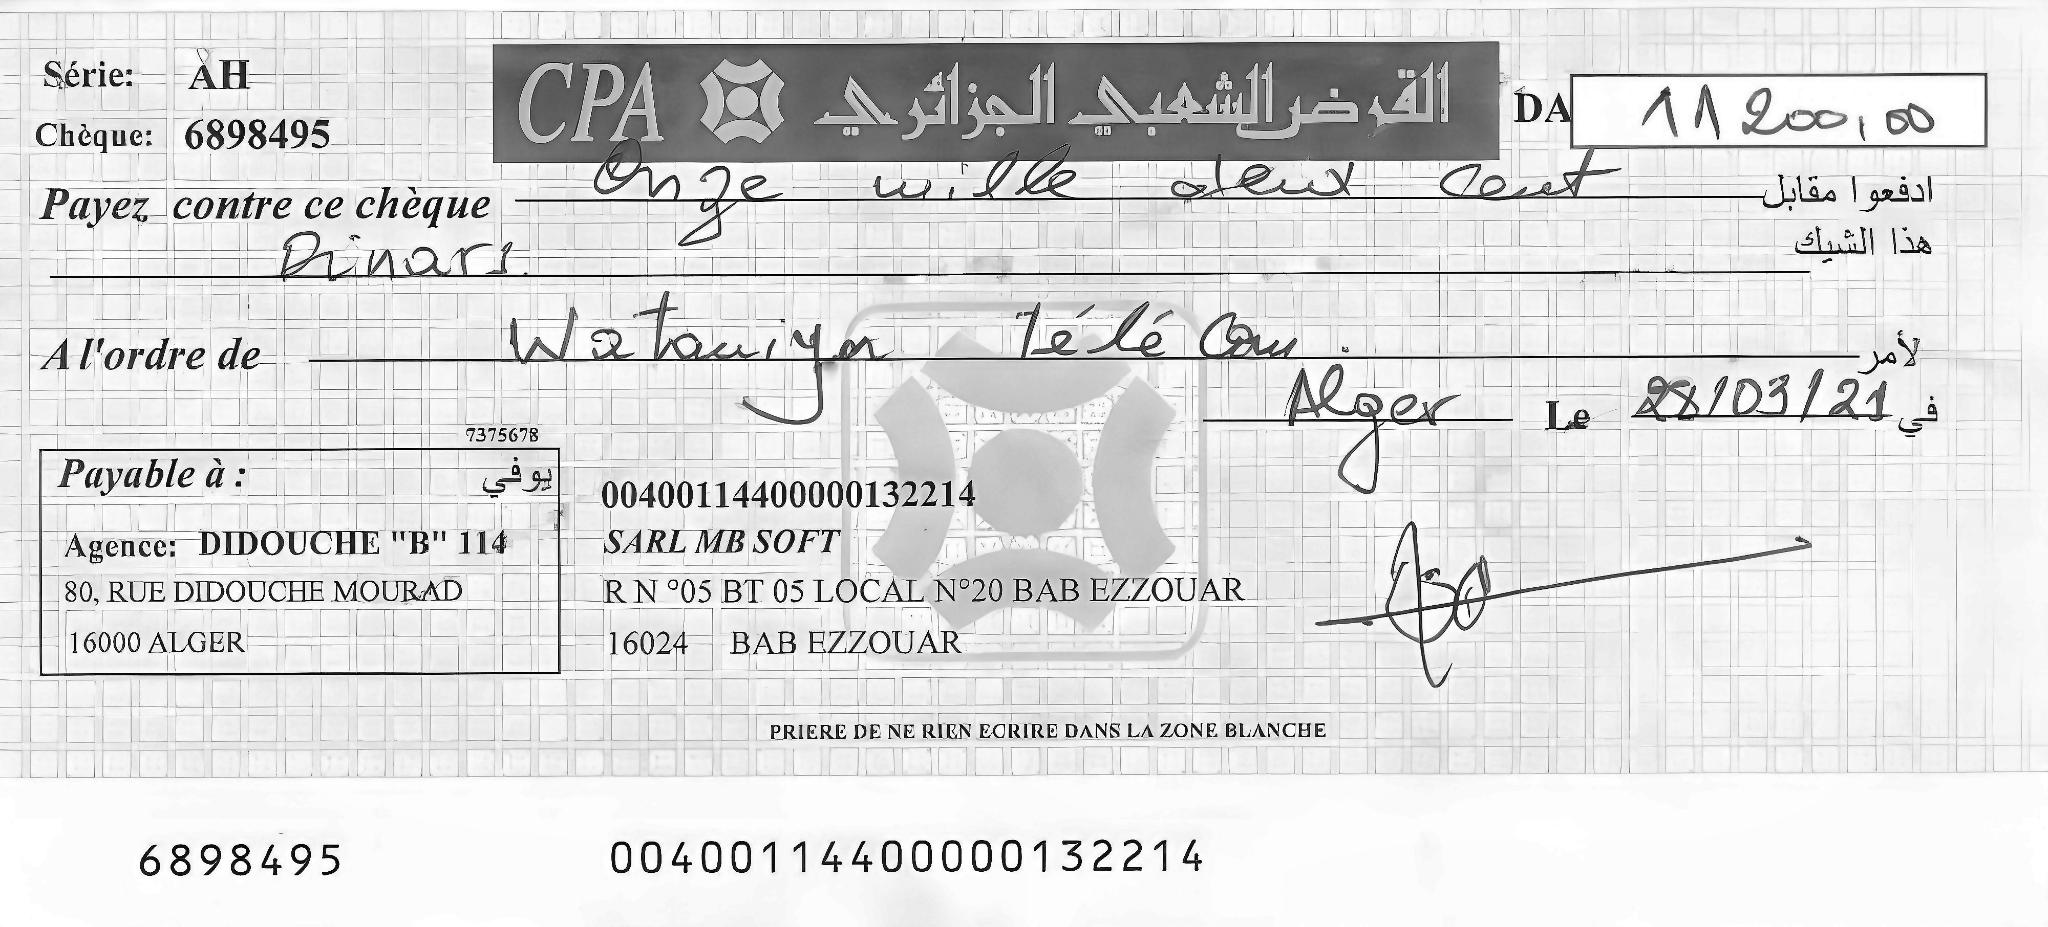 Série: AH
Chèque: 6898495
CPA القرض الشعبي الجزائري
DA 11 200,00
Payez contre ce chèque Onze mille deux cent ادفعوا مقابل
هذا الشيك
Dinars.
A l'ordre de Wataniya télé Com. لأمر
Alger Le 28/03/21 في
7375678
Payable à : يوفي
Agence: DIDOUCHE "B" 114
80, RUE DIDOUCHE MOURAD
16000 ALGER
00400114400000132214
SARL MB SOFT
R N °05 BT 05 LOCAL N°20 BAB EZZOUAR
16024 BAB EZZOUAR
PRIERE DE NE RIEN ECRIRE DANS LA ZONE BLANCHE
6898495 00400114400000132214